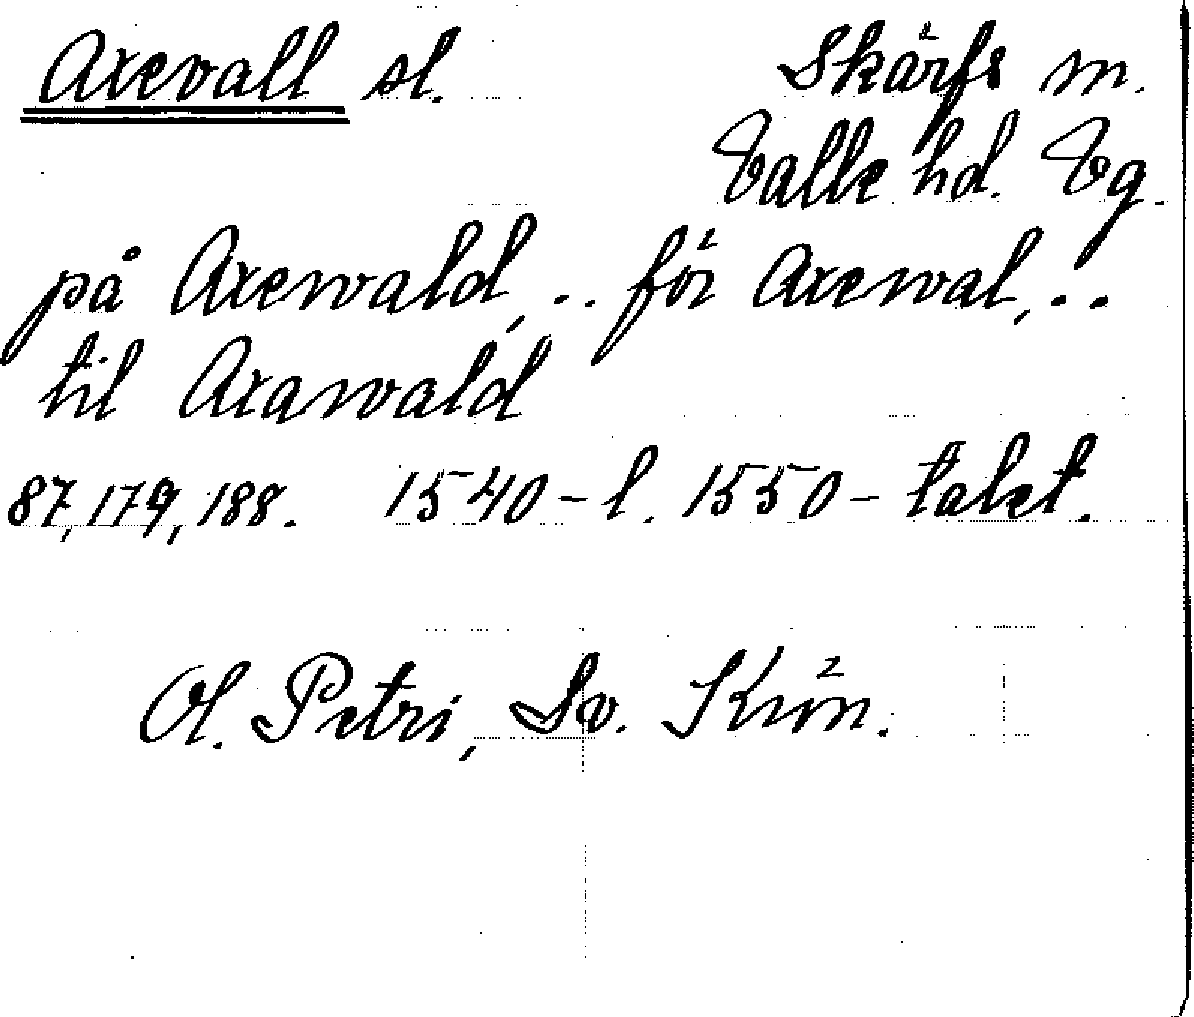 Axevall sl. Skärfs m.
Valle hd. Vg.
på Axewald, .. för Axewal, ..
til Axawald
87, 179, 188. 1540-l. 1550-talet.
Ol. Petri, Sv. Krön.